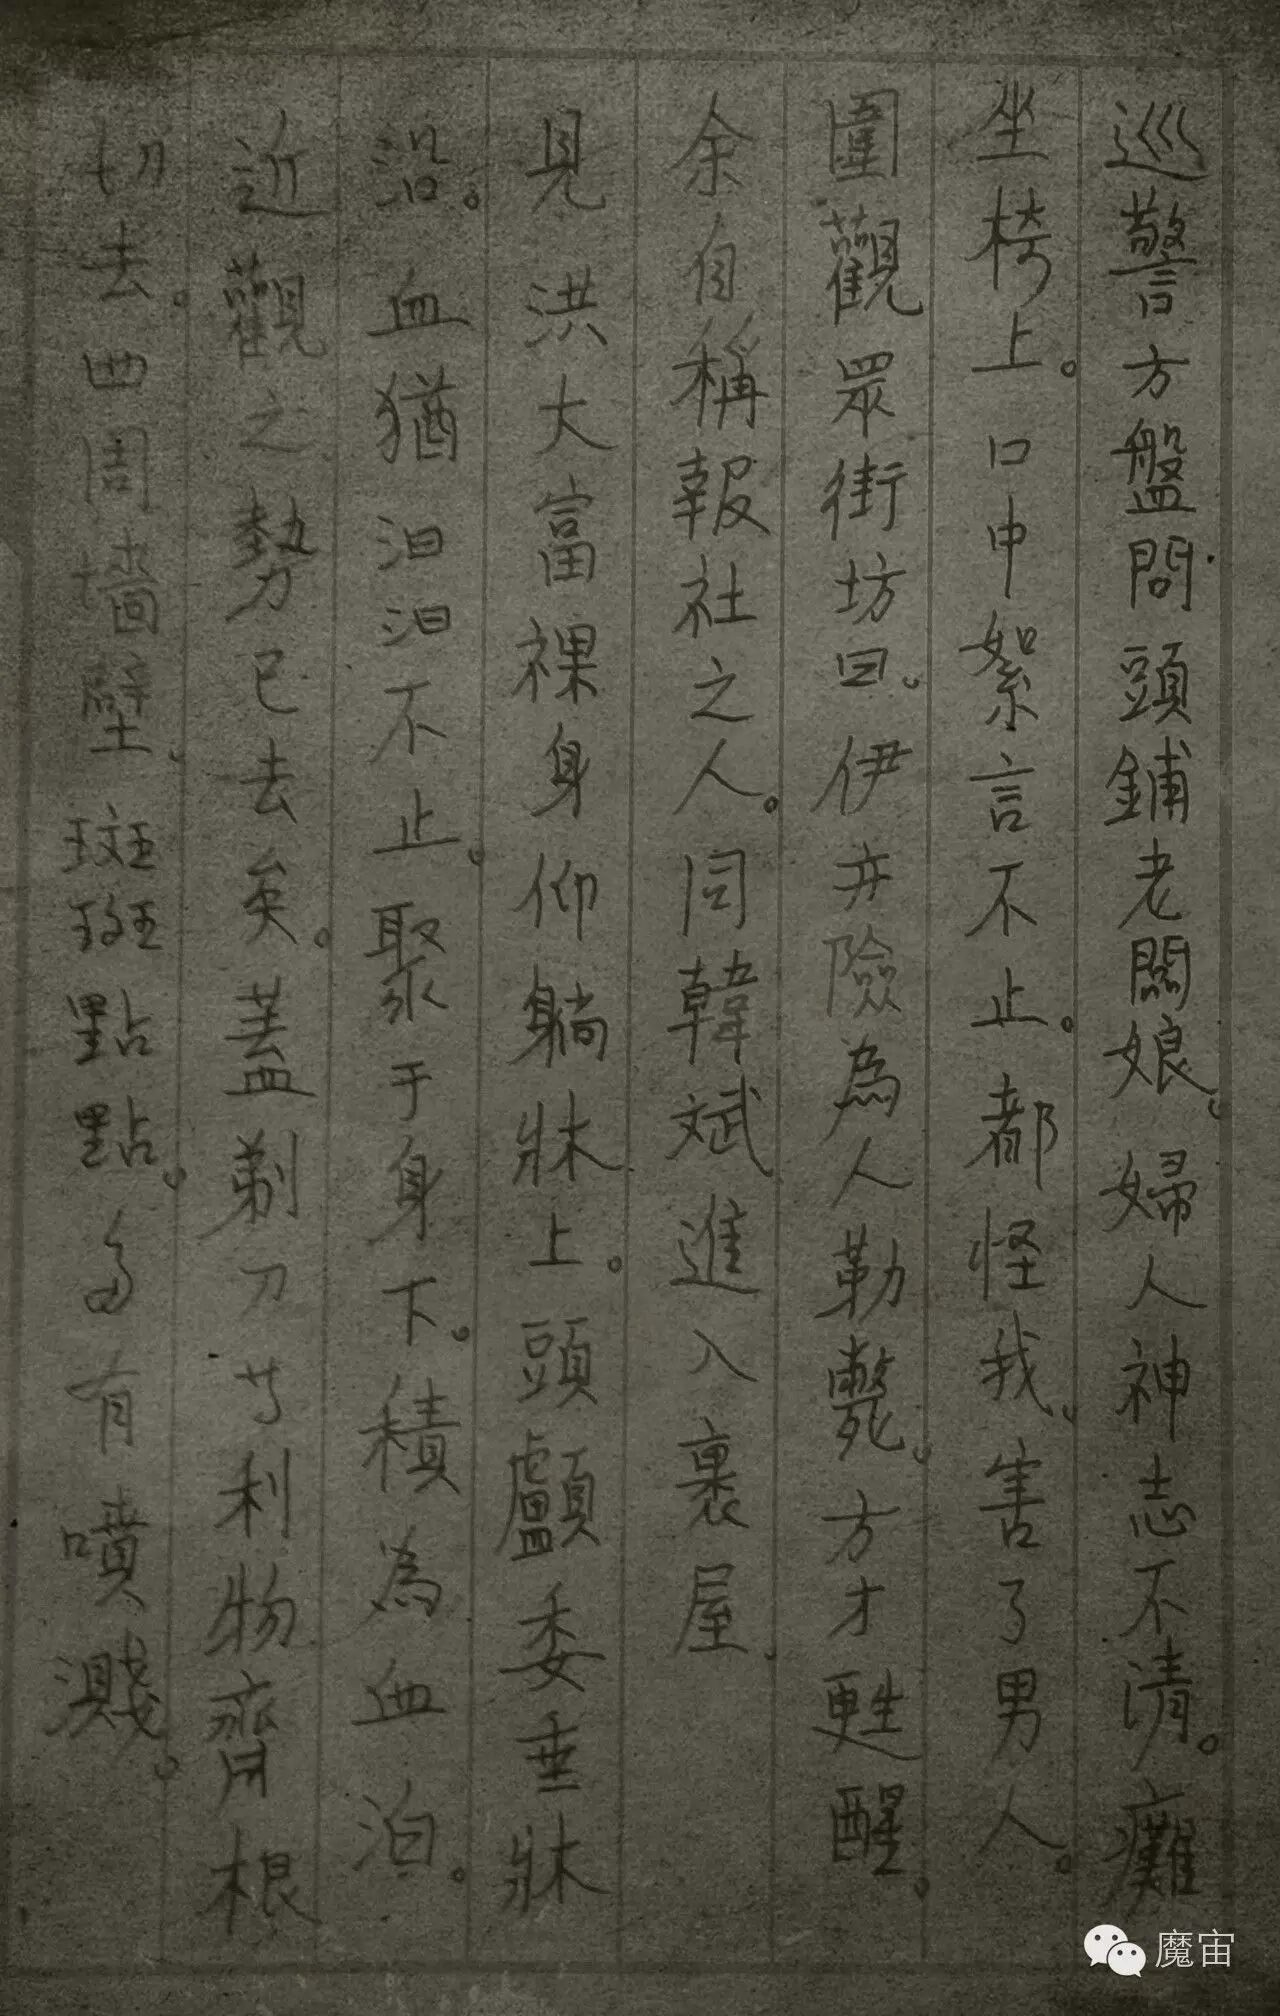 巡警方盤問頭鋪老闆娘，婦人神志不清。癱
坐椅上。口中絮言不止。都怪我，害了男人。
圍觀眾街坊曰，伊亦險為人勒斃，方才甦醒。
余自稱報社之人。同韓斌進入裏屋，
見洪大富裸身仰躺牀上。頭顱委垂牀
沿。血猶汩汩不止，聚于身下。積為血泊。
近觀之勢已去矣。蓋剃刀類利物齊根
切去。四周墻壁，斑斑點點，多有噴濺。
魔宙